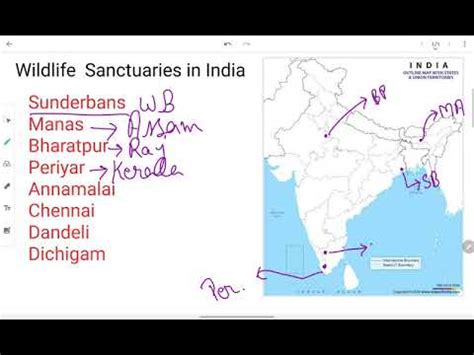 Wildlife Sanctuaries in India
Sunderbans WB
Manas → Assam
Bharatpur → Raj
Periyar → Kerala
Annamalai
Chennai
Dandeli
Dichigam
INDIA
OUTLINE MAP WITH STATES
& UNION TERRITORIES
BP
MA
SB
Per.